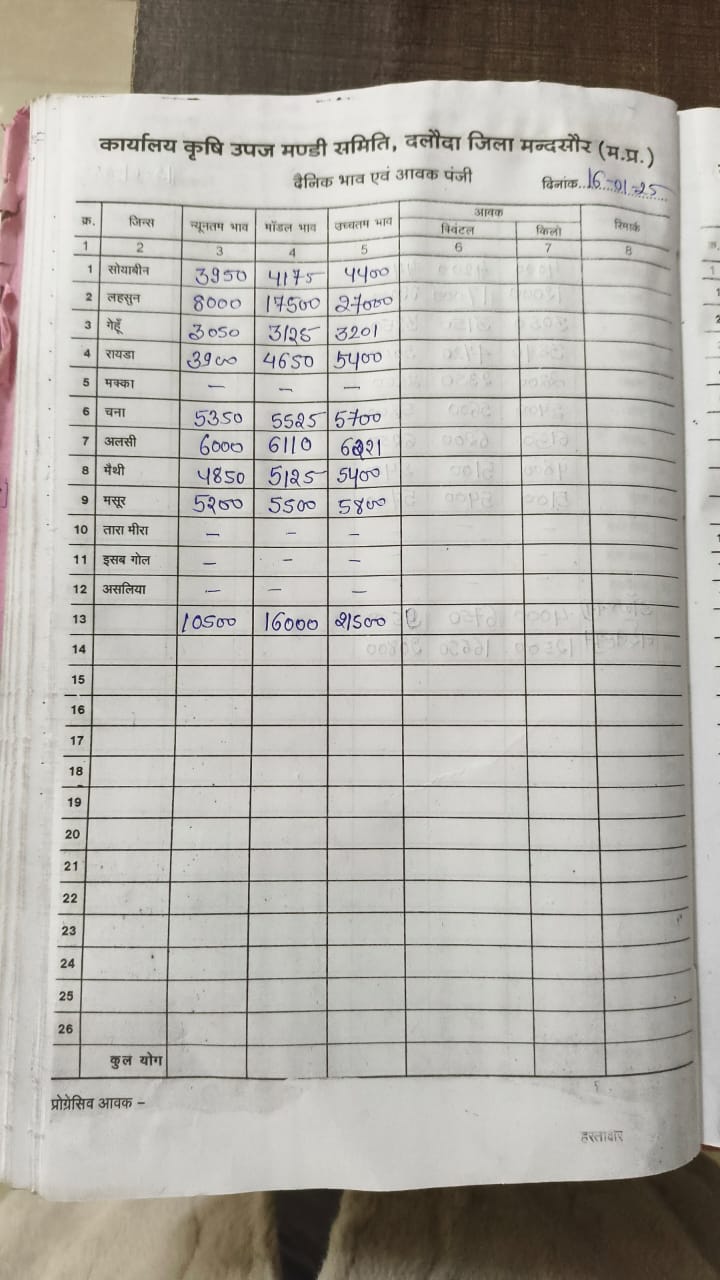 कार्यालय कृषि उपज मण्डी समिति, दलौदा जिला मन्दसौर (म.प्र.)
दैनिक भाव एवं आवक पंजी
दिनांक..16-01-25
क्र. जिन्स न्यूनतम भाव मॉडल भाव उच्चतम भाव आवक रिमार्क
क्विंटल किलो
1 2 3 4 5 6 7 8
1 सोयाबीन 3950 4175 4400
2 लहसुन 8000 17500 27000
3 गेहूँ 3050 3125 3201
4 रायडा 3900 4650 5400
5 मक्का — — —
6 चना 5350 5525 5700
7 अलसी 6000 6110 6221
8 मैथी 4850 5125 5400
9 मसूर 5200 5500 5800
10 तारा मीरा — — —
11 इसब गोल — — —
12 असलिया — — —
13 10500 16000 21500
14
15
16
17
18
19
20
21
22
23
24
25
26
कुल योग
प्रोग्रेसिव आवक –
हस्ताक्षर